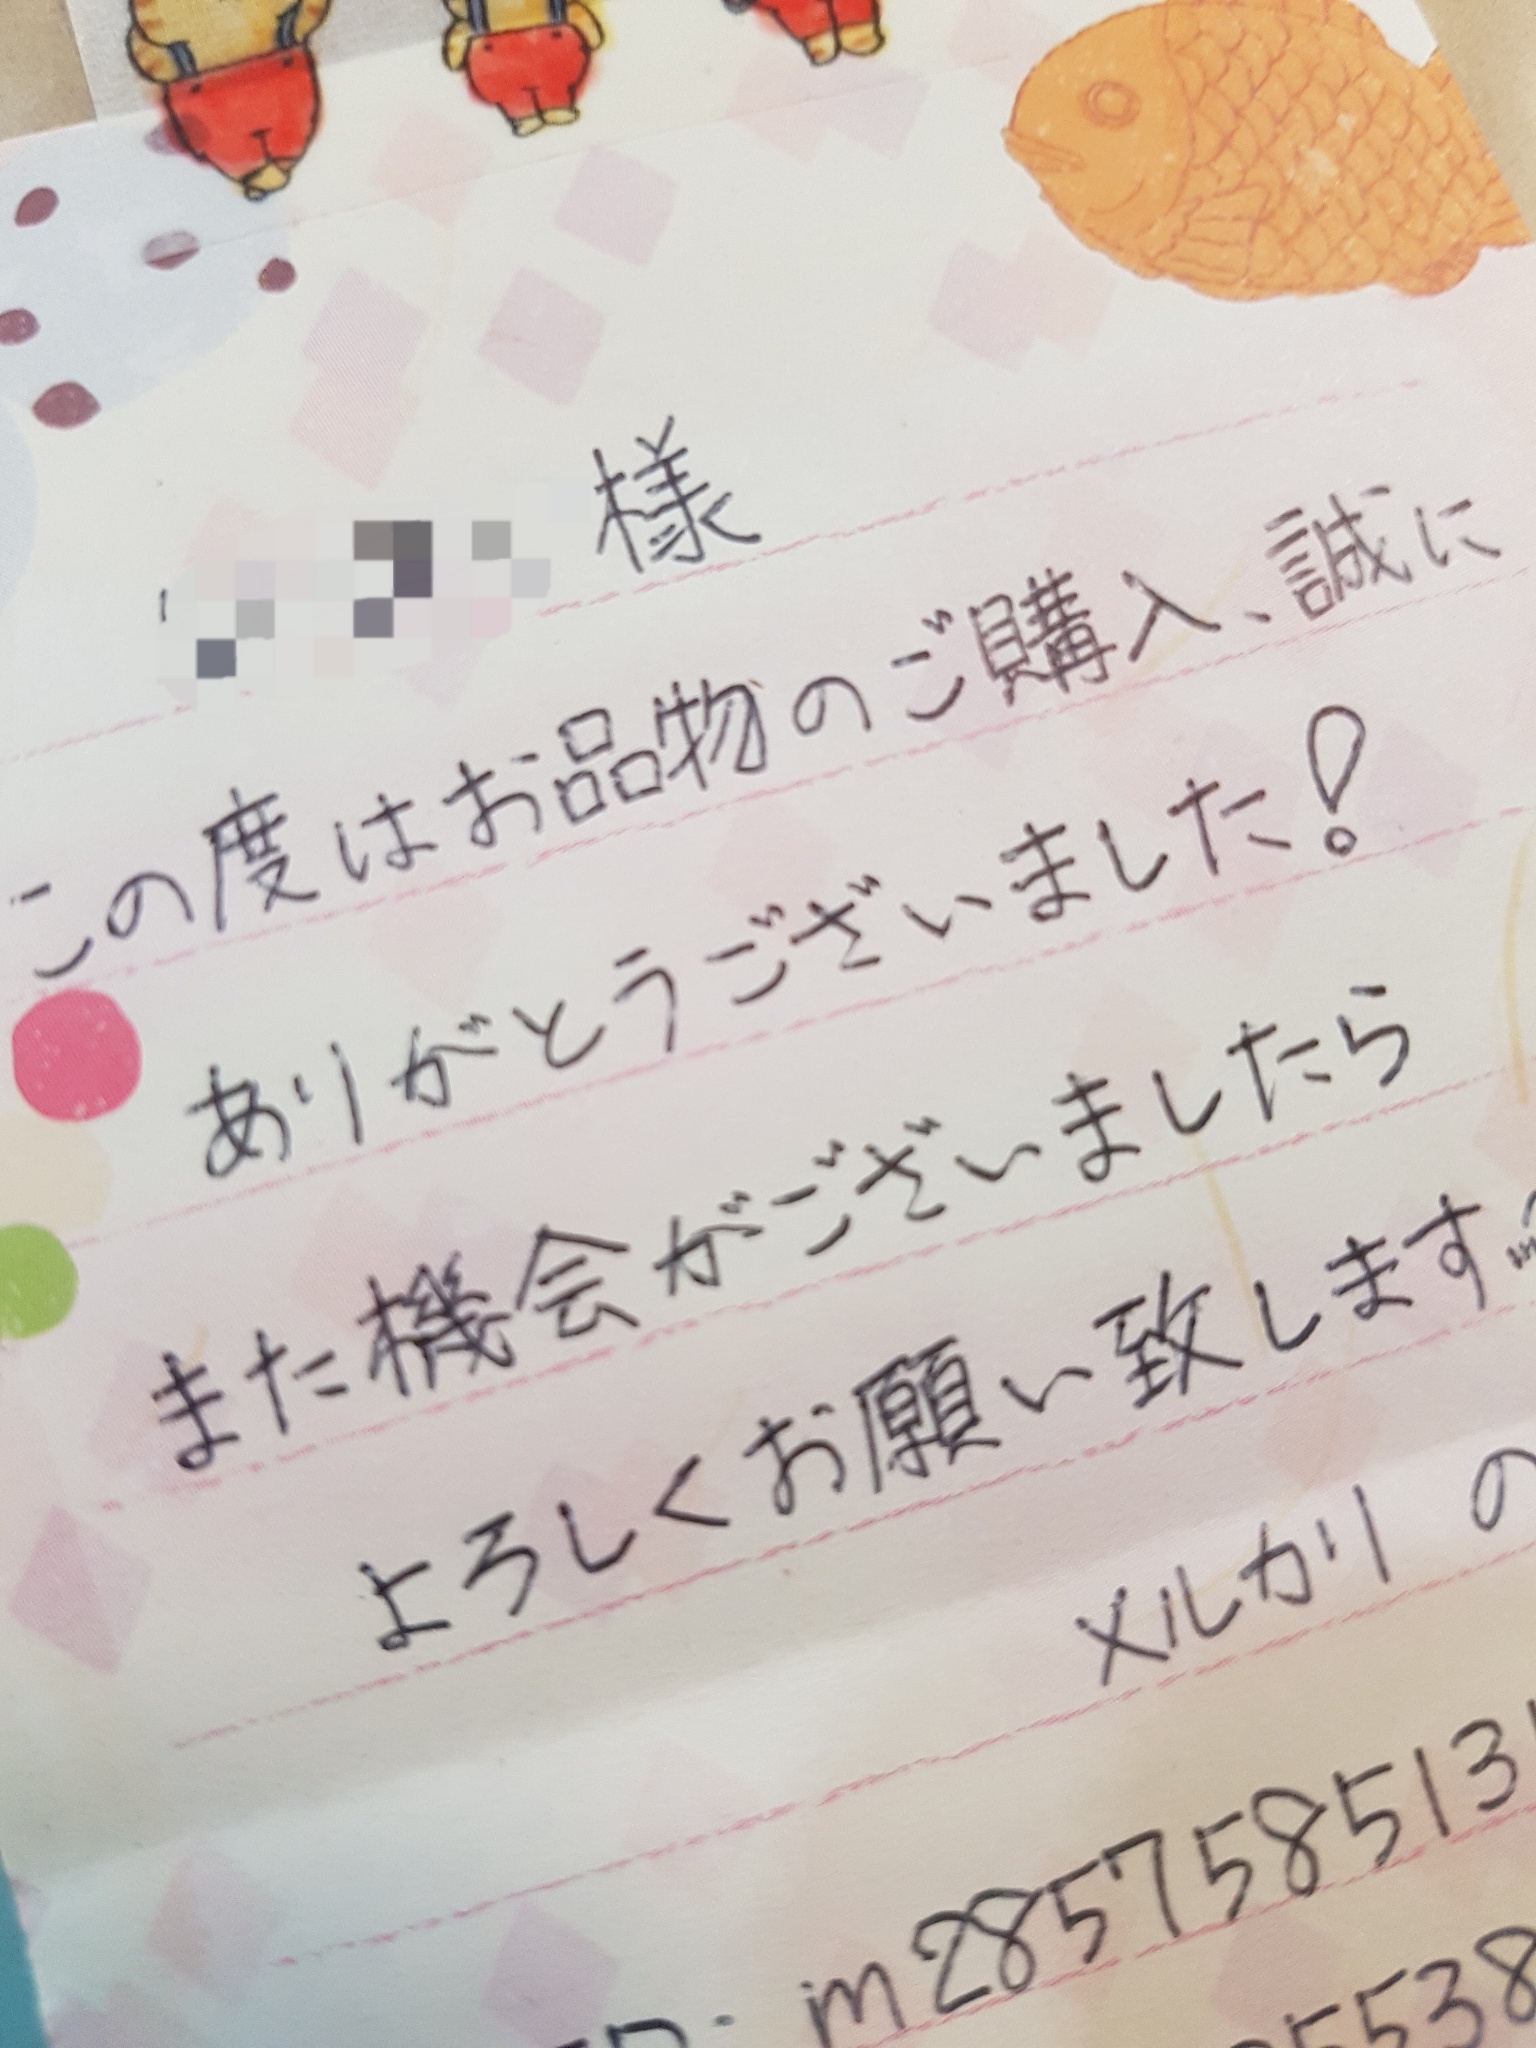 様
この度はお品物のご購入、誠に
ありがとうございました!
また機会がございましたら
よろしくお願い致します
メルカリ の
m2857585131
5538